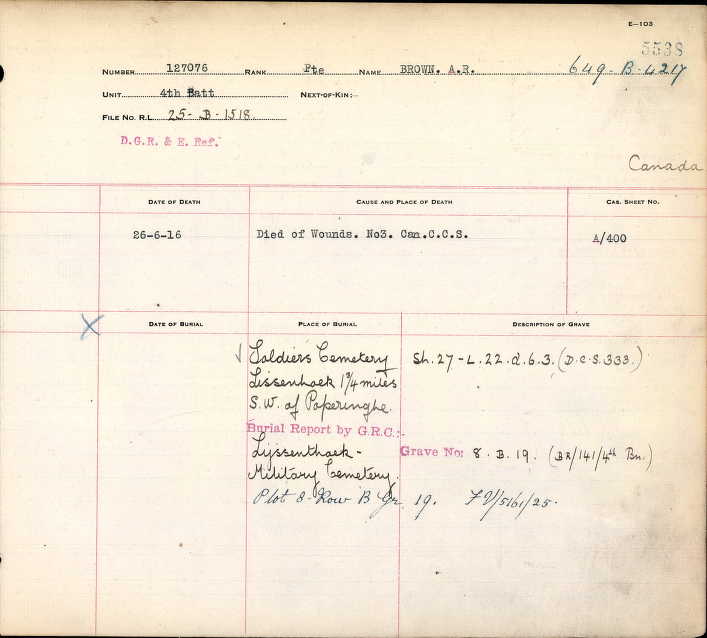 E-103
5538
NUMBER 127076 RANK Pte NAME BROWN. A.R. 649-B-4217
UNIT 4th Batt NEXT-OF-KIN:-
FILE NO. R.L. 25-B-1518.
D.G.R. & E. Ref.
Canada
DATE OF DEATH CAUSE AND PLACE OF DEATH CAS. SHEET NO.
26-6-16 Died of Wounds. No3. Can.C.C.S. A/400
X DATE OF BURIAL PLACE OF BURIAL DESCRIPTION OF GRAVE
Soldiers Cemetery Sh.27-L.22.d.6.3. (D.C.S.333.)
Lissenhoek 1¾ miles
S.W. of Poperinghe.
Burial Report by G.R.C.:-
Lyssenthoek- Grave No: 8. B. 19. (BR/141/4th Bn.)
Military Cemetery.
Plot 8-Row B Gr. 19. /5161/25.